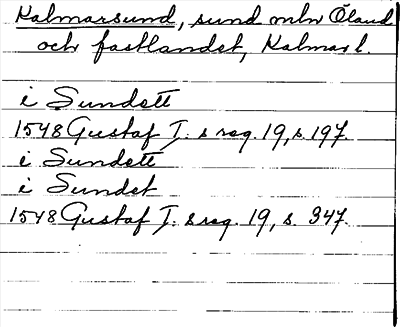 Kalmarsund, sund mln Öland
och fastlandet, Kalmar l.
i Sundett
1548 Gustaf I:s reg. 19, s. 197.
i Sundett
i Sundet
1548 Gustaf I:s reg. 19, s. 347.